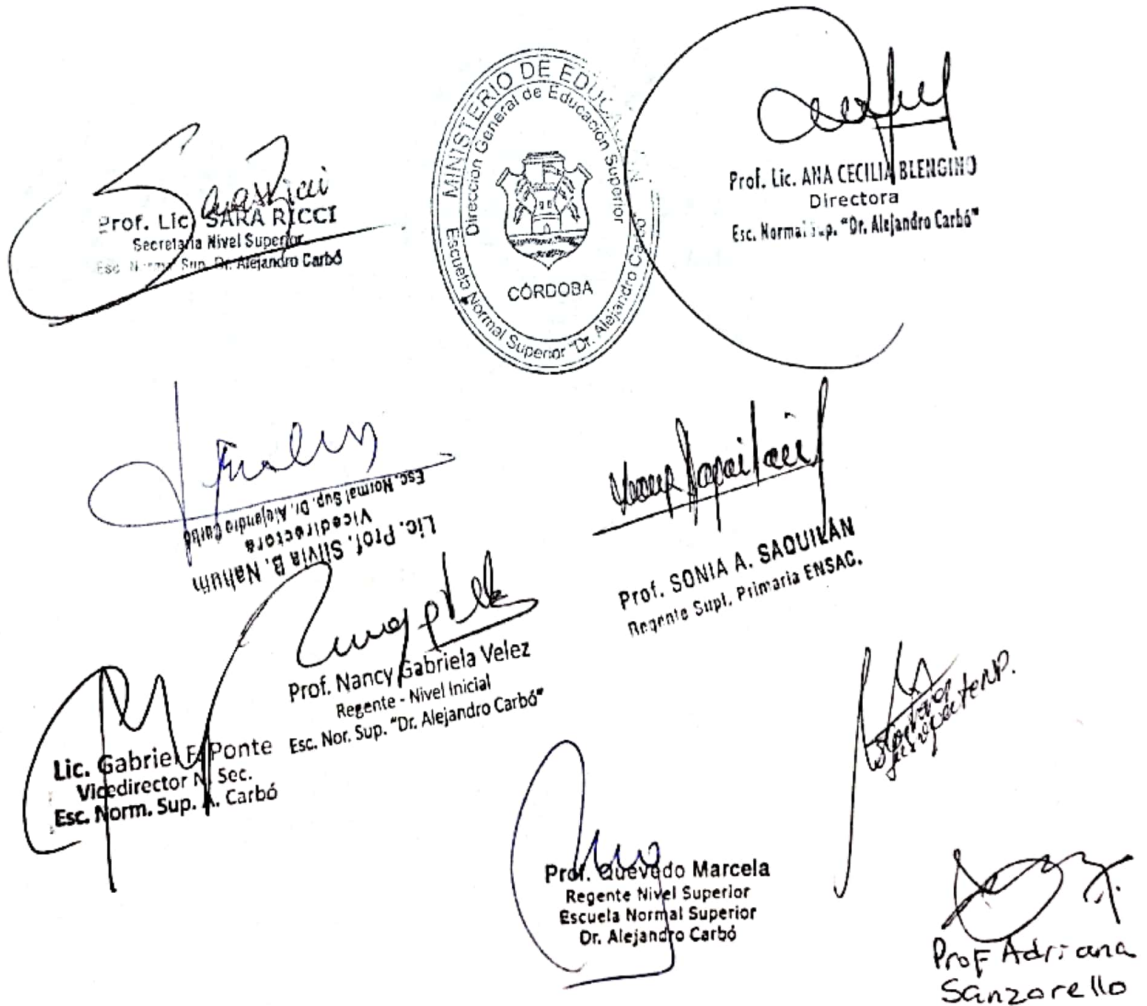 Prof. Lic. SARA RICCI
Secretaria Nivel Superior
Esc. Normal Sup. Dr. Alejandro Carbó
MINISTERIO DE EDUCACIÓN
Dirección General de Educación Superior
CÓRDOBA
Escuela Normal Superior "Dr. Alejandro Carbó"
Prof. Lic. ANA CECILIA BLENGINO
Directora
Esc. Normal Sup. "Dr. Alejandro Carbó"
Lic. Prof. Silvia B. Nahum
Vicedirectora
Esc. Normal Sup. Dr. Alejandro Carbó
Prof. SONIA A. SAQUILÁN
Regente Supl. Primaria ENSAC.
Prof. Nancy Gabriela Velez
Regente - Nivel Inicial
Esc. Nor. Sup. "Dr. Alejandro Carbó"
Lic. Gabriel F. Ponte
Vicedirector N. Sec.
Esc. Norm. Sup. A. Carbó
Prof. Quevedo Marcela
Regente Nivel Superior
Escuela Normal Superior
Dr. Alejandro Carbó
Prof Adriana
Sanzarello